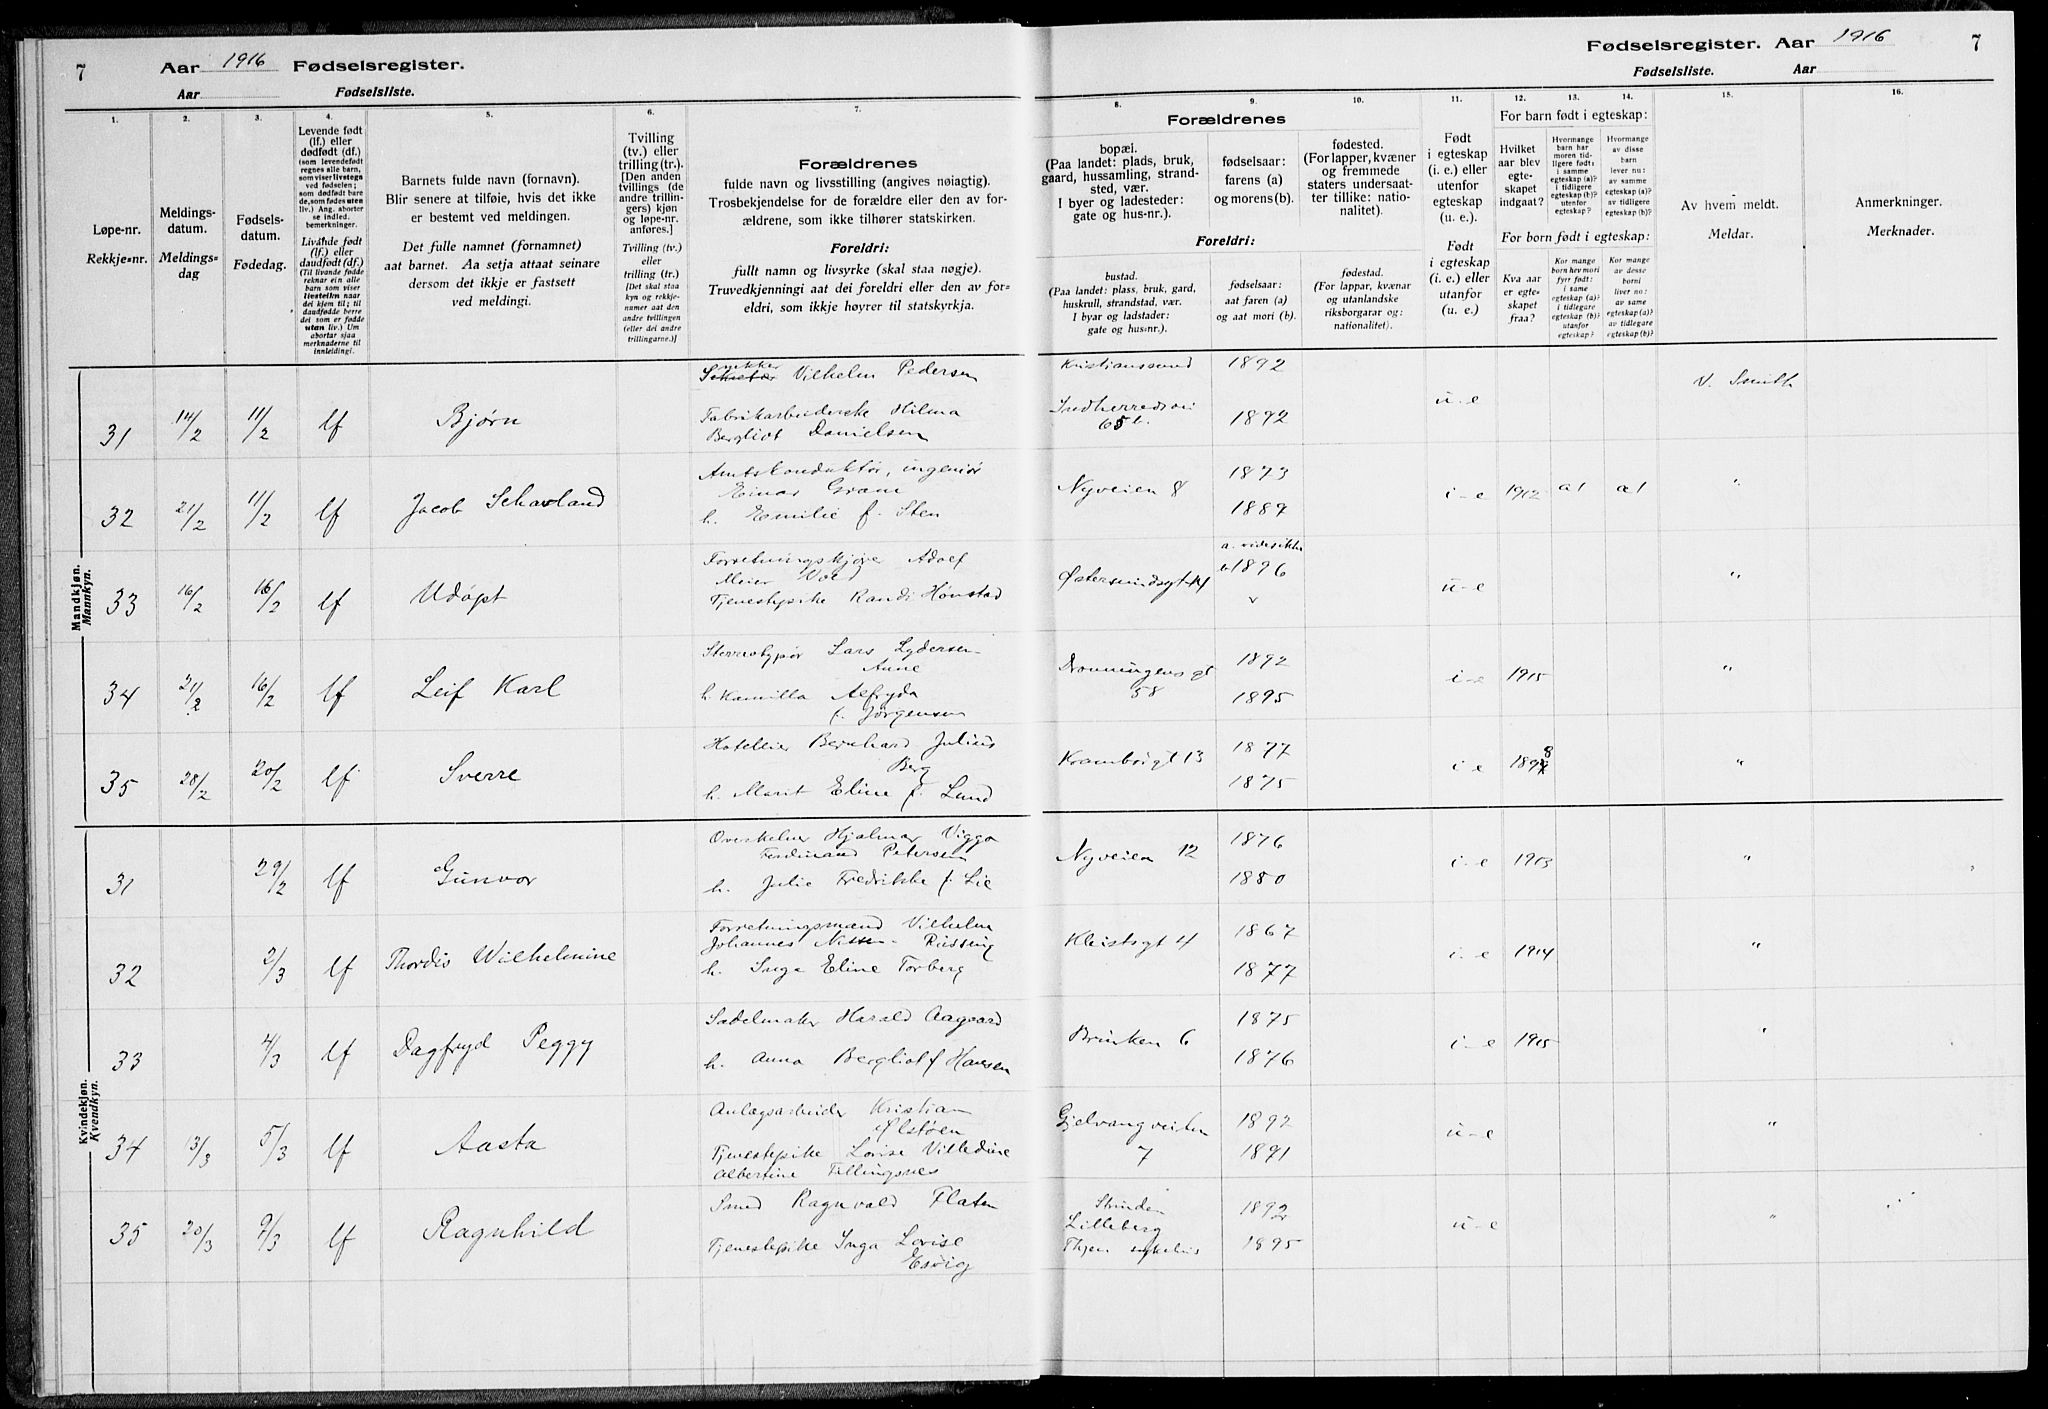 7 Aar 1916 Fødselsregister.
Aar Fødselsliste.
Fødselsregister. Aar 1916 7
Fødselsliste. Aar
1. 2. 3. 4. 5. 6. 7. 8. 9. 10. 11. 12. 13. 14. 15. 16.
Løpe-nr.
Rekkje-nr.
Meldings-
datum.
Meldings-
dag
Fødsels-
datum.
Fødedag.
Levende født
(lf.) eller
dødfødt (df.)
(som levendefødt
regnes alle barn,
som viser livstegn
ved fødselen;
som dødfødt bare
de, som fødes uten
liv.) Ang. aborter
se indled.
bemerkninger.
Livande født
(lf.) eller
daudfødt (df.)
(Til livande fødde
reknar ein alle
barn som viser
livsteikn naar
dei kjem til; til
daudfødde berre
dei som er fødde
utan liv.) Um
abortar sjaa
merknaderne til
innleidingi.
Barnets fulde navn (fornavn).
Blir senere at tilføie, hvis det ikke
er bestemt ved meldingen.
Det fulle namnet (fornamnet)
aat barnet. Aa setja attaat seinare
dersom det ikkje er fastsett
ved meldingi.
Tvilling
(tv.) eller
trilling (tr.).
[Den anden
tvillings (de
andre trillin-
gers) kjøn
og løpe-nr.
anføres.]
Tvilling (tv.)
eller
trilling (tr.)
[Det skal staa
kyn og rekkje-
numer aat den
andre tvillingen
(eller dei andre
trillingarne.)]
Forældrenes
fulde navn og livsstilling (angives nøiagtig).
Trosbekjendelse for de forældre eller den av for-
ældrene, som ikke tilhører statskirken.
Foreldri:
fullt namn og livsyrke (skal staa nøgje).
Truvedkjenningi aat dei foreldri eller den av for-
eldri, som ikkje høyrer til statskyrkja.
Forældrenes
bopæl.
(Paa landet: plads, bruk,
gaard, hussamling, strand-
sted, vær.
I byer og ladesteder:
gate og hus-nr.).
fødselsaar:
farens (a)
og morens (b).
fødested.
(For lapper, kvæner
og fremmede
staters undersaat-
ter tillike: natio-
nalitet).
Foreldri:
bustad.
(Paa landet: plass, bruk, gard,
huskrull, strandstad, vær.
I byar og ladstader:
gate og hus-nr.).
fødselsaar:
aat faren (a)
og aat mori (b).
fødestad.
(For lappar, kvænar
og utanlandske
riksborgarar og:
nationalitet).
Født
i egteskap
(i. e.) eller
utenfor
egteskap
(u. e.).
Født
i egteskap
(i. e.) eller
utanfor
(u. e.)
For barn født i egteskap:
Hvilket
aar blev
egte-
skapet
indgaat?
Hvormange
barn har
moren tid-
ligere født:
i samme
egteskap (a)?
i tidligere
egteskap (b)?
utenfor
egteskap?
Hvormange
av disse
barn
lever nu:
av samme
egteskap (a)?
av tidligere
egteskap (b)?
For born født i egteskap:
Kva aar
er egte-
skapet
fraa?
Kor mange
born hev mori
fyrr født:
i same
egteskap (a)?
i tidlegare
egteskap (b)?
utanfor
egteskap?
Kor mange
av desse
borni
liver no:
av same
egteskap (a)?
av tidlegare
egteskap (b)?
Av hvem meldt.
Meldar.
Anmerkninger.
Merknader.
Mandkjøn.
Mannkyn.
31 14/2 11/2 lf Bjørn
Vilhelm Pedersen
Fabrikarbeiderske Hilma
Bergliot Danielsen
Kristianssund 1892
Indherredsvei
65 b. 1892 u-e V. Smith
32 21/2 11/2 lf Jacob Schavland
Amtskonduktør, ingeniør
Einar Gram
h. Emilie f. Sten
Nyveien 8 1873
1889 i-e 1912 a1 a1 "
33 16/2 16/2 lf Udøpt
Adolf
Meier Vold
Tjenestepike Randi Hønstad
Østersundsgt 14 b 1896 u-e "
34 21/2 16/2 lf Leif Karl
Stereotypør Lars Lydersen
Anne
h. Kamilla Alfryda
f. Jørgensen
Dronningens gt
58 1892
1895 i-e 1915 "
35 28/2 20/2 lf Sverre
Hoteleier Bernhard Julius
Berg
h. Marit Eline f. Lund
Krambugt 13 1877
1875 i-e 1898 "
Kvindekjøn.
Kvendkyn.
31 29/2 lf Gunvor
Overkelner Hjalmar Viggo
Ferdinand Petersen
h. Julie Fredrikke f. Lie
Nyveien 12 1876
1880 i-e 1913 "
32 2/3 lf Thordis Wilhelmine
Forretningsmand Vilhelm
Johannes
h. Inga Eline Torberg
Kleistsgt 4 1867
1877 i-e 1914 "
33 4/3 lf Dagfryd Peggy
Sadelmaker Harald Aagaard
h. Anna Bergliot f Hansen
Brinken 6 1875
1876 i-e 1915 "
34 13/3 5/3 lf Aasta
Anlægsarbeider Kristian
Ølstøen
Tjenestepike Lovise
Albertine Fillingsnes
Gjelvangveiten
7 1892
1891 u-e "
35 20/3 9/3 lf Ragnhild
Smed Ragnvald Flaten
Tjenestepike Inga Lovise
Esvig
Strinden
Lilleberg
1892
1895 u-e "